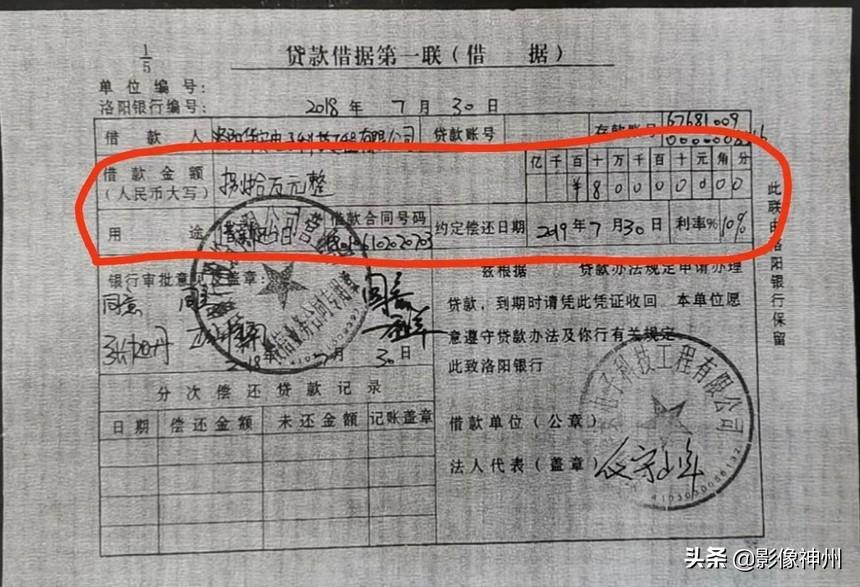 1/5
贷款借据第一联(借 据)
单位编号:
洛阳银行编号: 2018 年 7 月 30 日
借款人 有限公司 贷款账号 存款账号 67681009
借款金额 捌拾万元整 亿千百十万千百十元角分
(人民币大写) ¥80000000
用途 借款合同号码 约定偿还日期 2019年7月30日 利率% 10%
银行审批意见及盖章: 兹根据 贷款办法规定申请办理
同意 贷款,到期时请凭此凭证收回.本单位愿
意遵守贷款办法及你行有关规定.
2018 月30日 此致洛阳银行
分次偿还贷款记录
日期 偿还金额 未还金额 记账盖章
借款单位(公章)
法人代表(盖章)
电子科技工程有限公司
此联由洛阳银行保留
头条 @影像神州